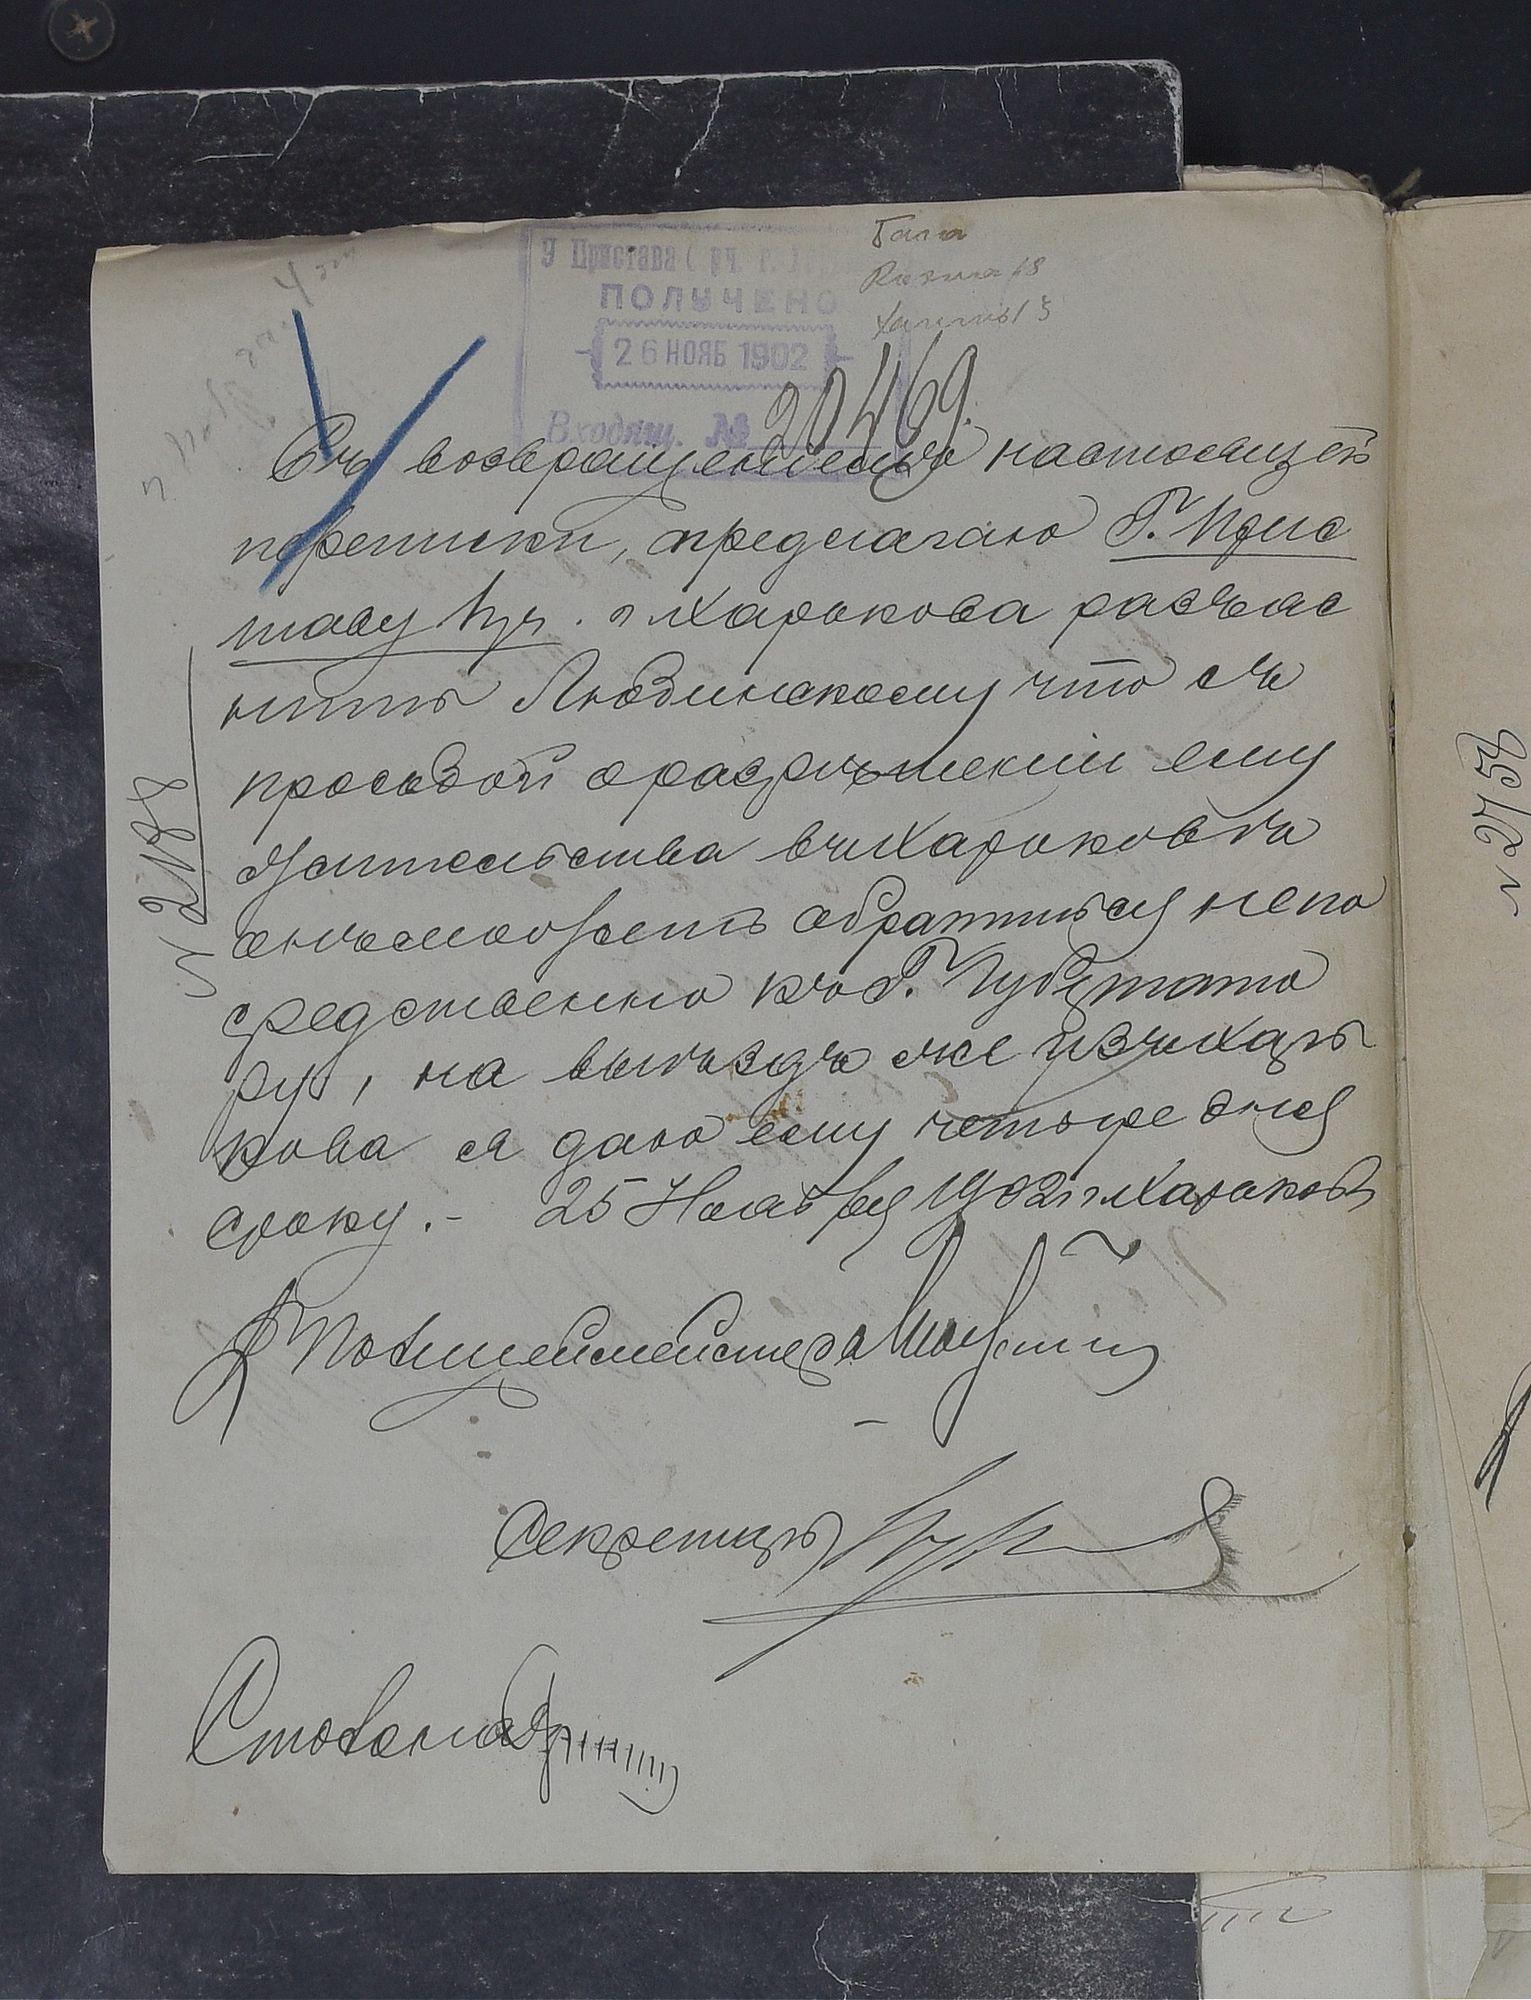 У Пристава
ПОЛУЧЕНО
26 НОЯБ 1902
Входящ. № 20469.
Съ возвращеніемъ настоящей
переписки, предлагаю Г. Прис
таву 1 уч. г. Харькова разъяс
нить Любинскому что съ
просьбой о разрѣшеніи ему
жительства въ г. Харьковѣ
онъ можетъ обратиться непо
средственно къ Г. Губернато
ру, на выѣздъ же изъ г. Харь
кова я даю ему четыре дня
сроку. - 25 Ноября 1902 г. г. Харьковъ
Полицеймейстеръ
Секретарь
Столоначальникъ